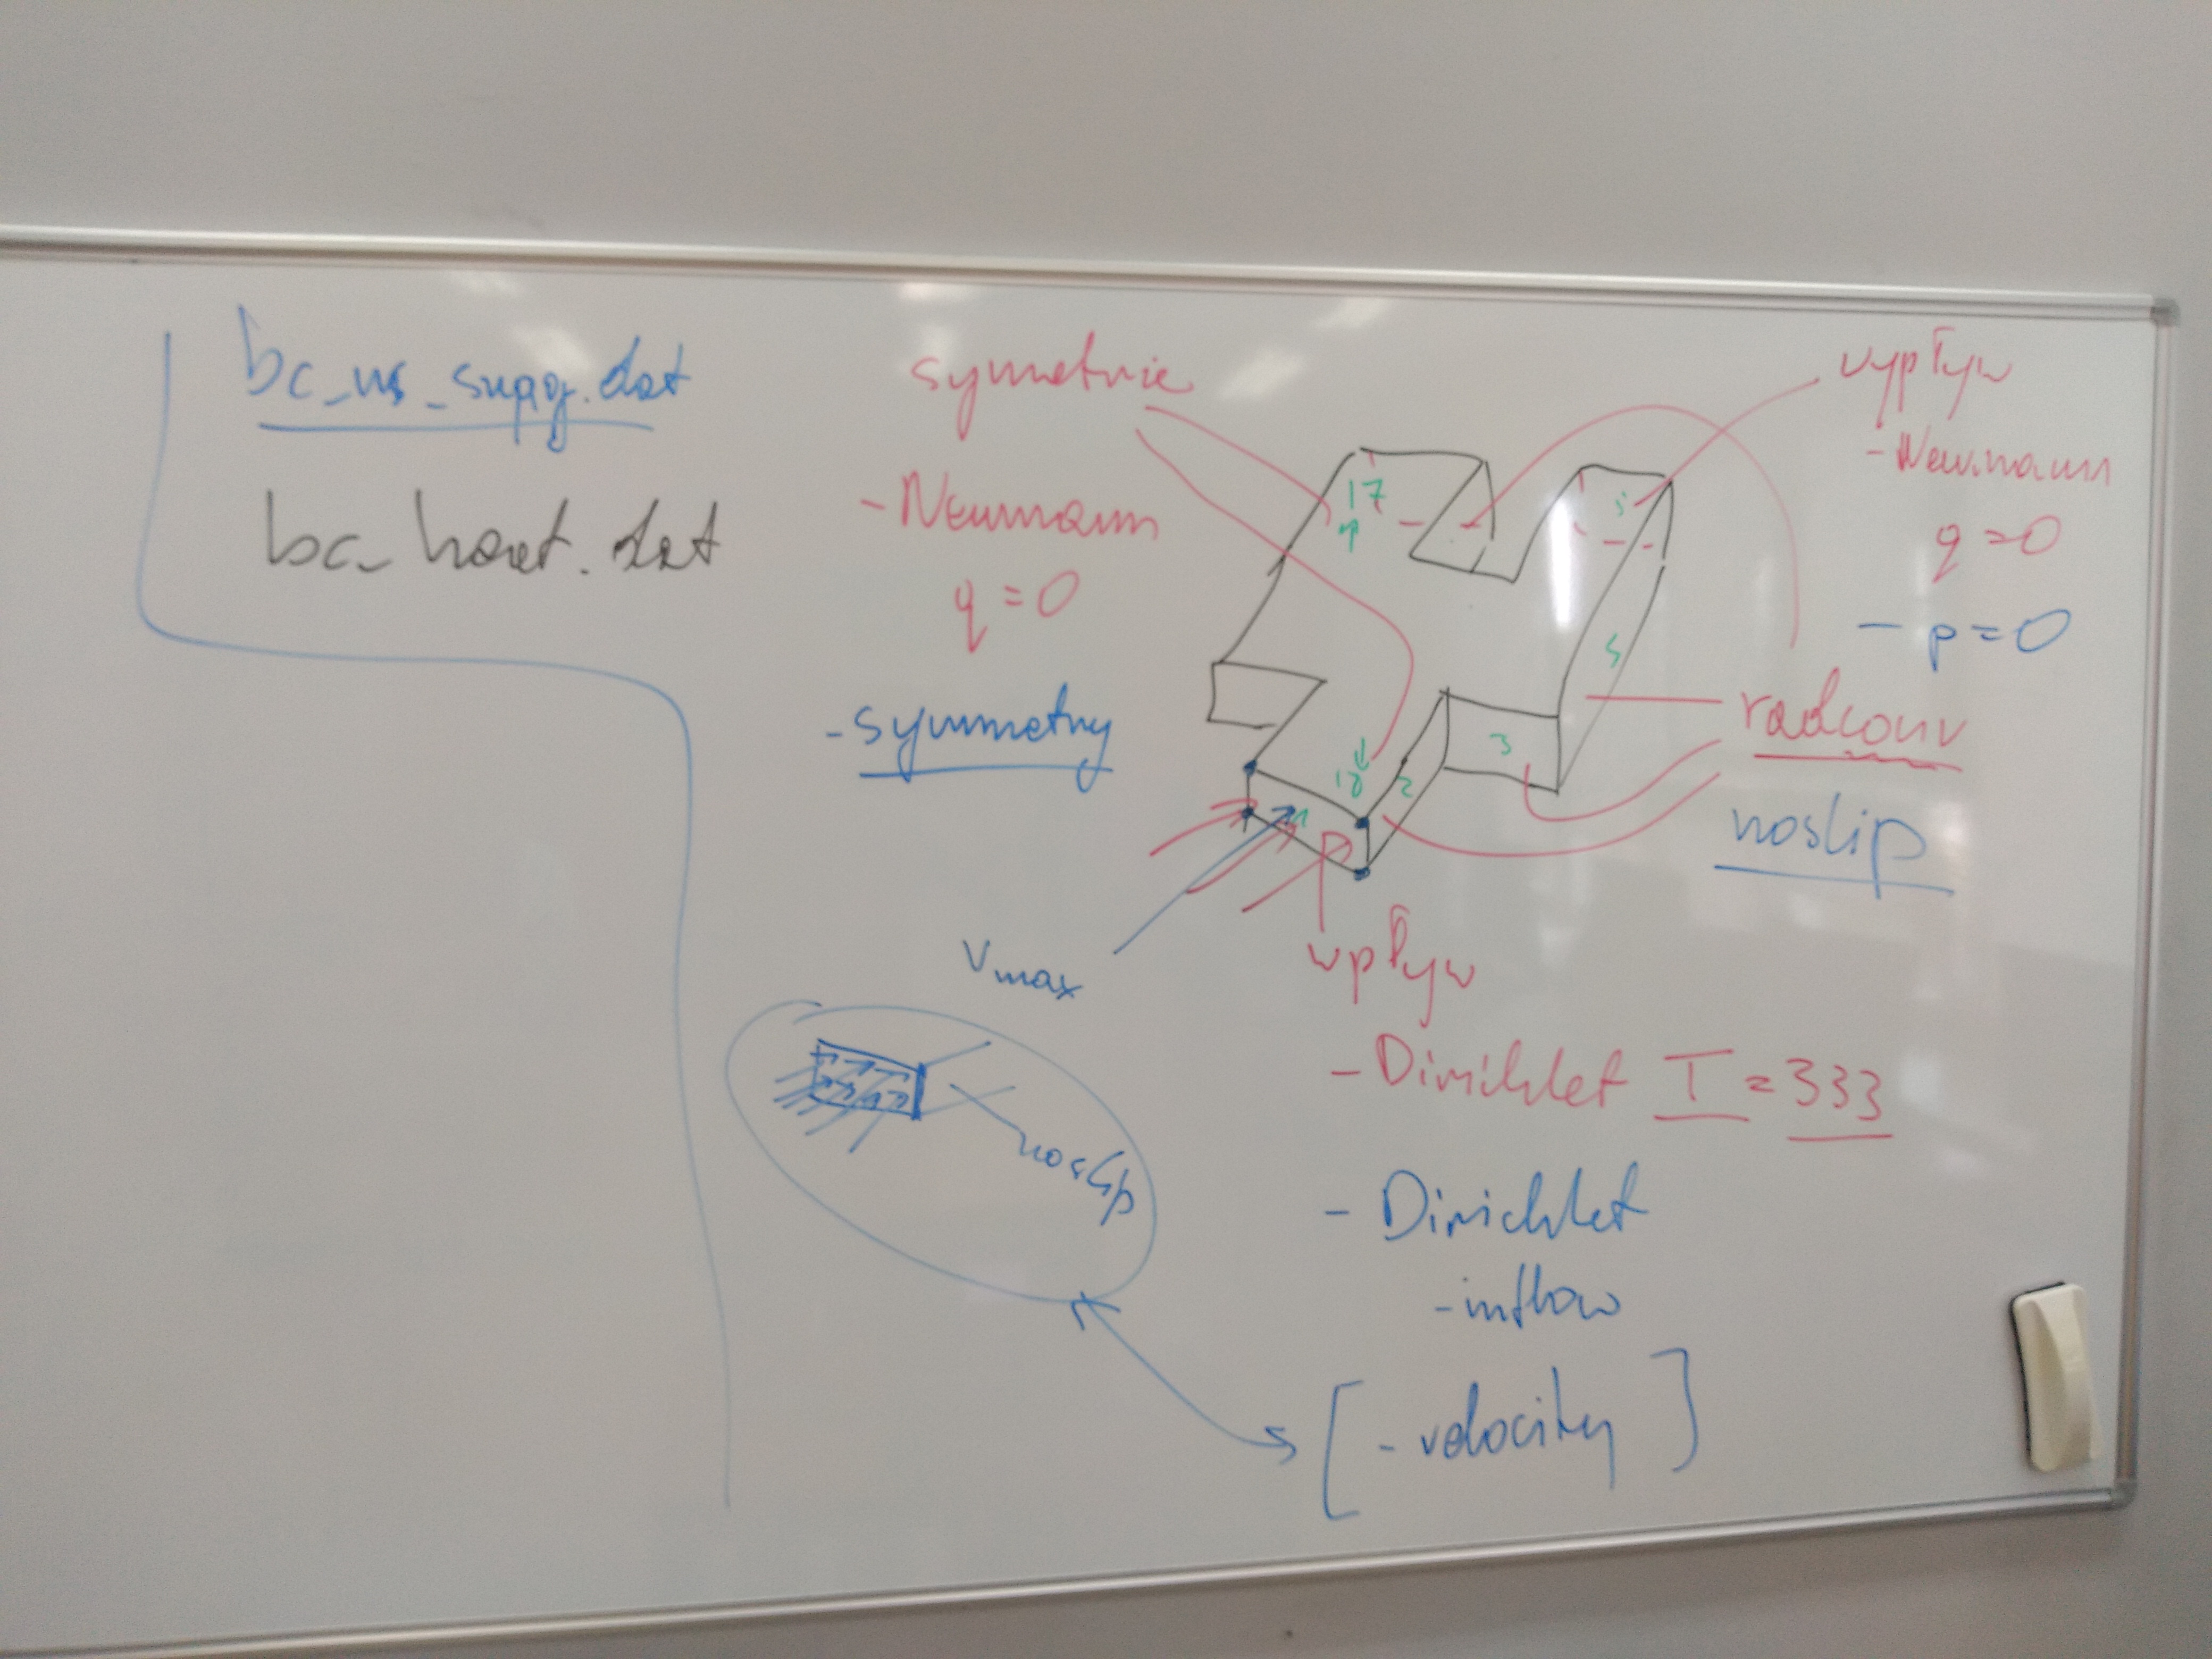 bc_ns_supg.dat
bc_heat.dat
symetrie
- Neumann
q = 0
- symmetry
17
3
5
2
10
Vmax
noslip
wpływ
- Dirichlet T = 333
- Dirichlet
- inflow
[ - velocity ]
wypływ
- Neumann
q = 0
- p = 0
radconv
noslip